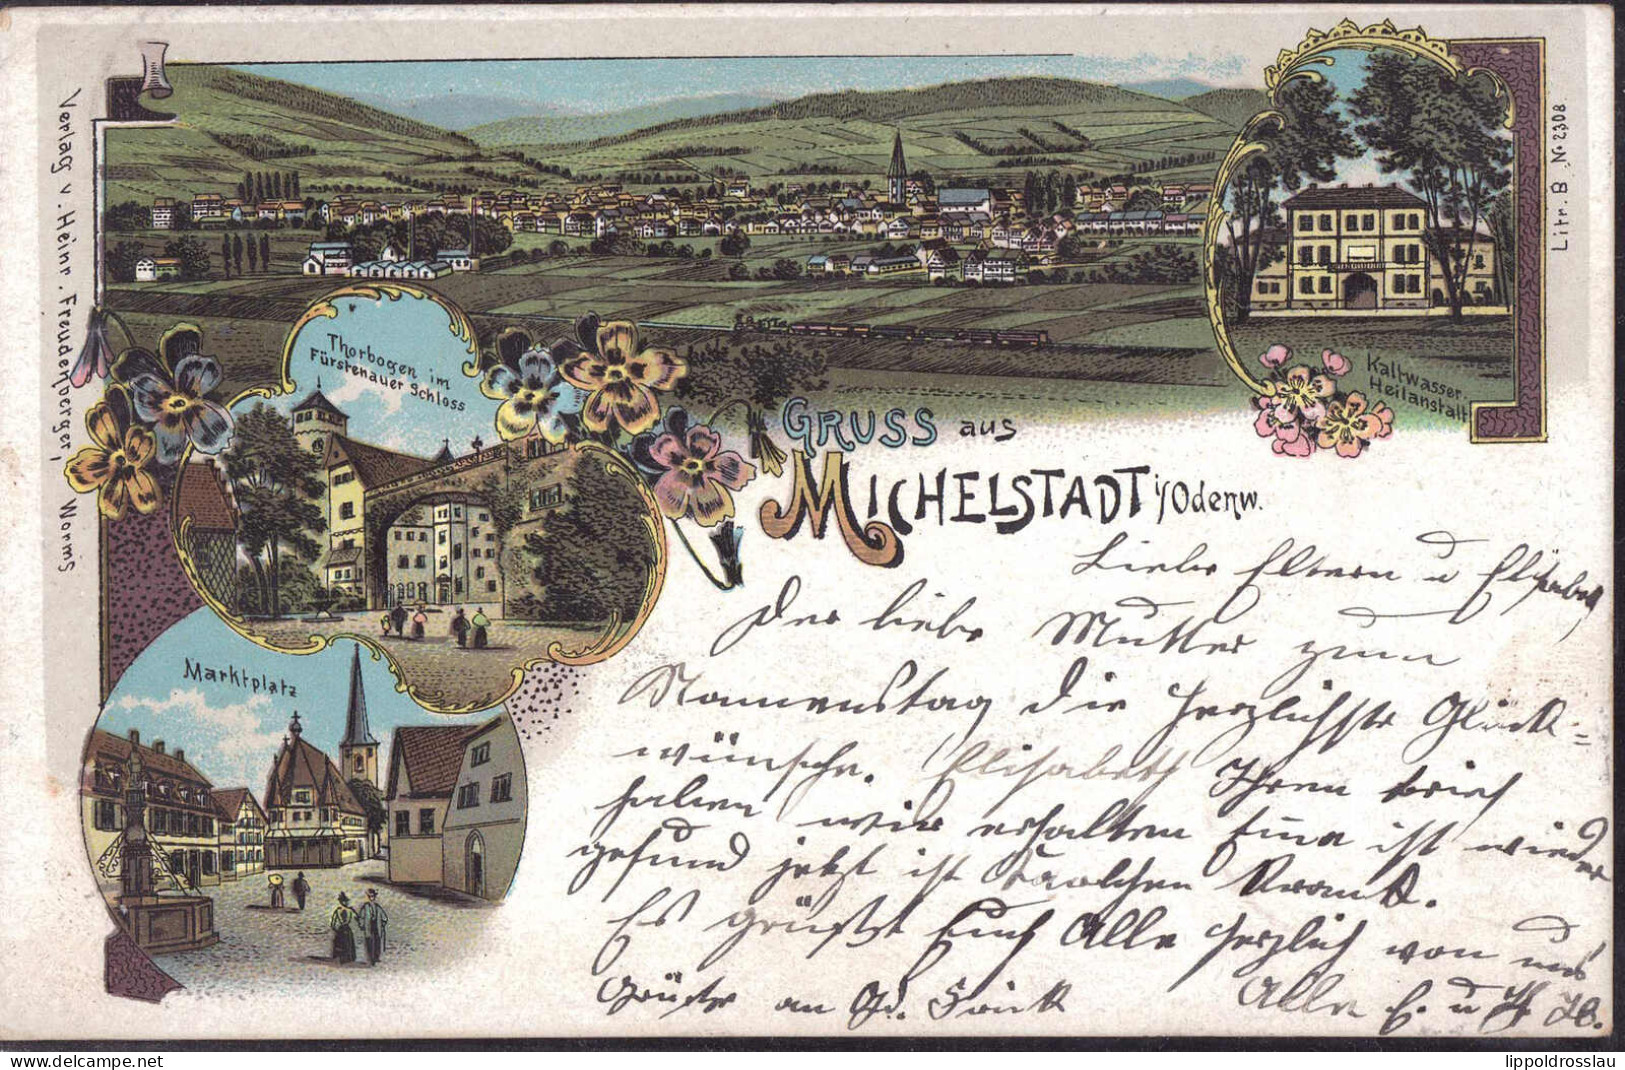 Verlag v. Heinr. Freudenberger, Worms
Litr. B. No 2308
Thorbogen im
Fürstenauer Schloss
Kaltwasser-
Heilanstalt
GRUSS aus
MICHELSTADT i/Odenw.
Marktplatz
Liebe Eltern u Elisabeth,
Der liebe Mutter zum
Namenstag die herzlichste Glück=
wünsche. Elisabeth Ihren Brief
haben wir erhalten ist wieder
gesund jetzt ist krank.
Es grüßt Euch Alle herzlich von uns
Grüße an Alle E. u
lippoldrosslau